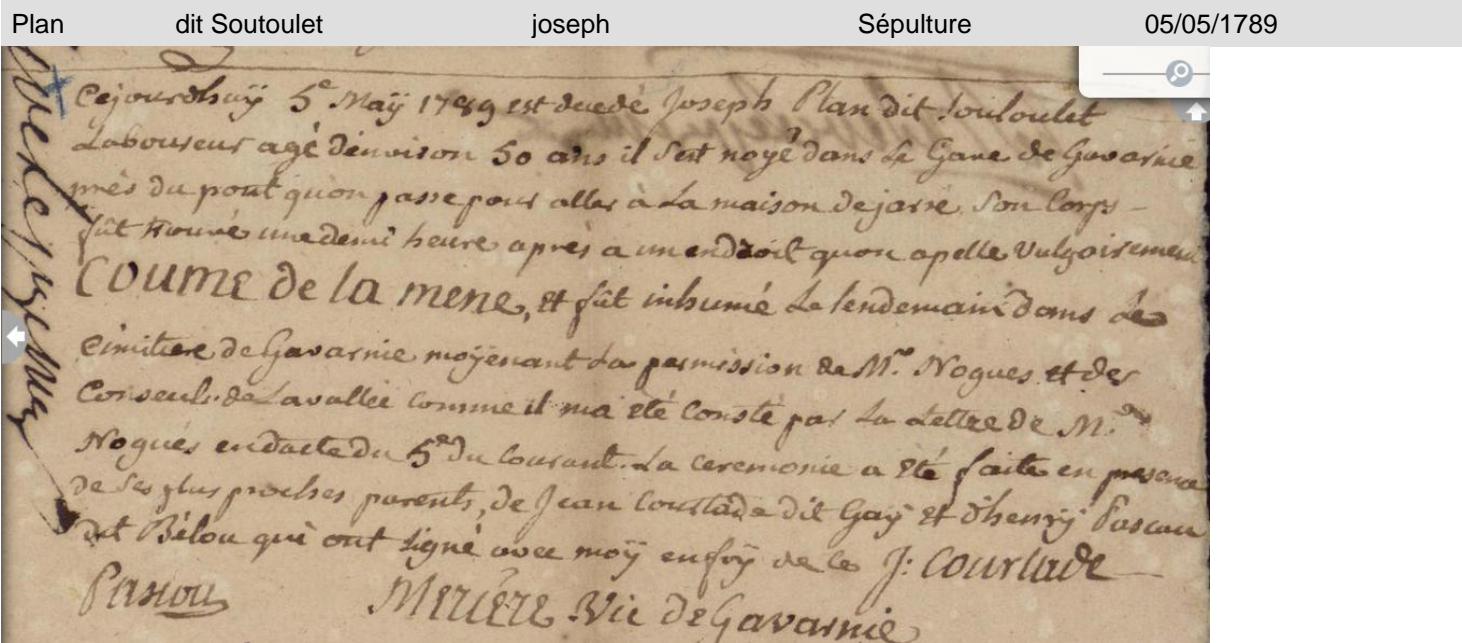 Plan dit Soutoulet joseph Sépulture 05/05/1789
Cejourdhuÿ 5e Maÿ 1789 est decedé Joseph Plan dit Souloulet
Laboureur agé denviron 50 ans il s'est noyé dans le Gave de Gavarnie
près du pont quon passe pour aller à la maison de jarré. Son Corps
fût trouvé une demi heure après a un endroit quon apelle Vulgairement
COUME de la mene, et fût inhumé Le lendemain Dans Le
Cimitiere de Gavarnie moÿenant La permission de Mr. Nogues et des
Conseuls de Lavallée comme il ma eté Consté par La Lettre de Mr.
Nogués en datte du 5e du Courant. La ceremonie a eté faite en presence
de ses plus proches parents, de Jean Courtade dit Gaÿ et d'henrÿ Pascau
dit Bélou qui ont signé avec moÿ en foÿ de ce J: Courtade
Pascou MERCERE Vic de Gavarnie